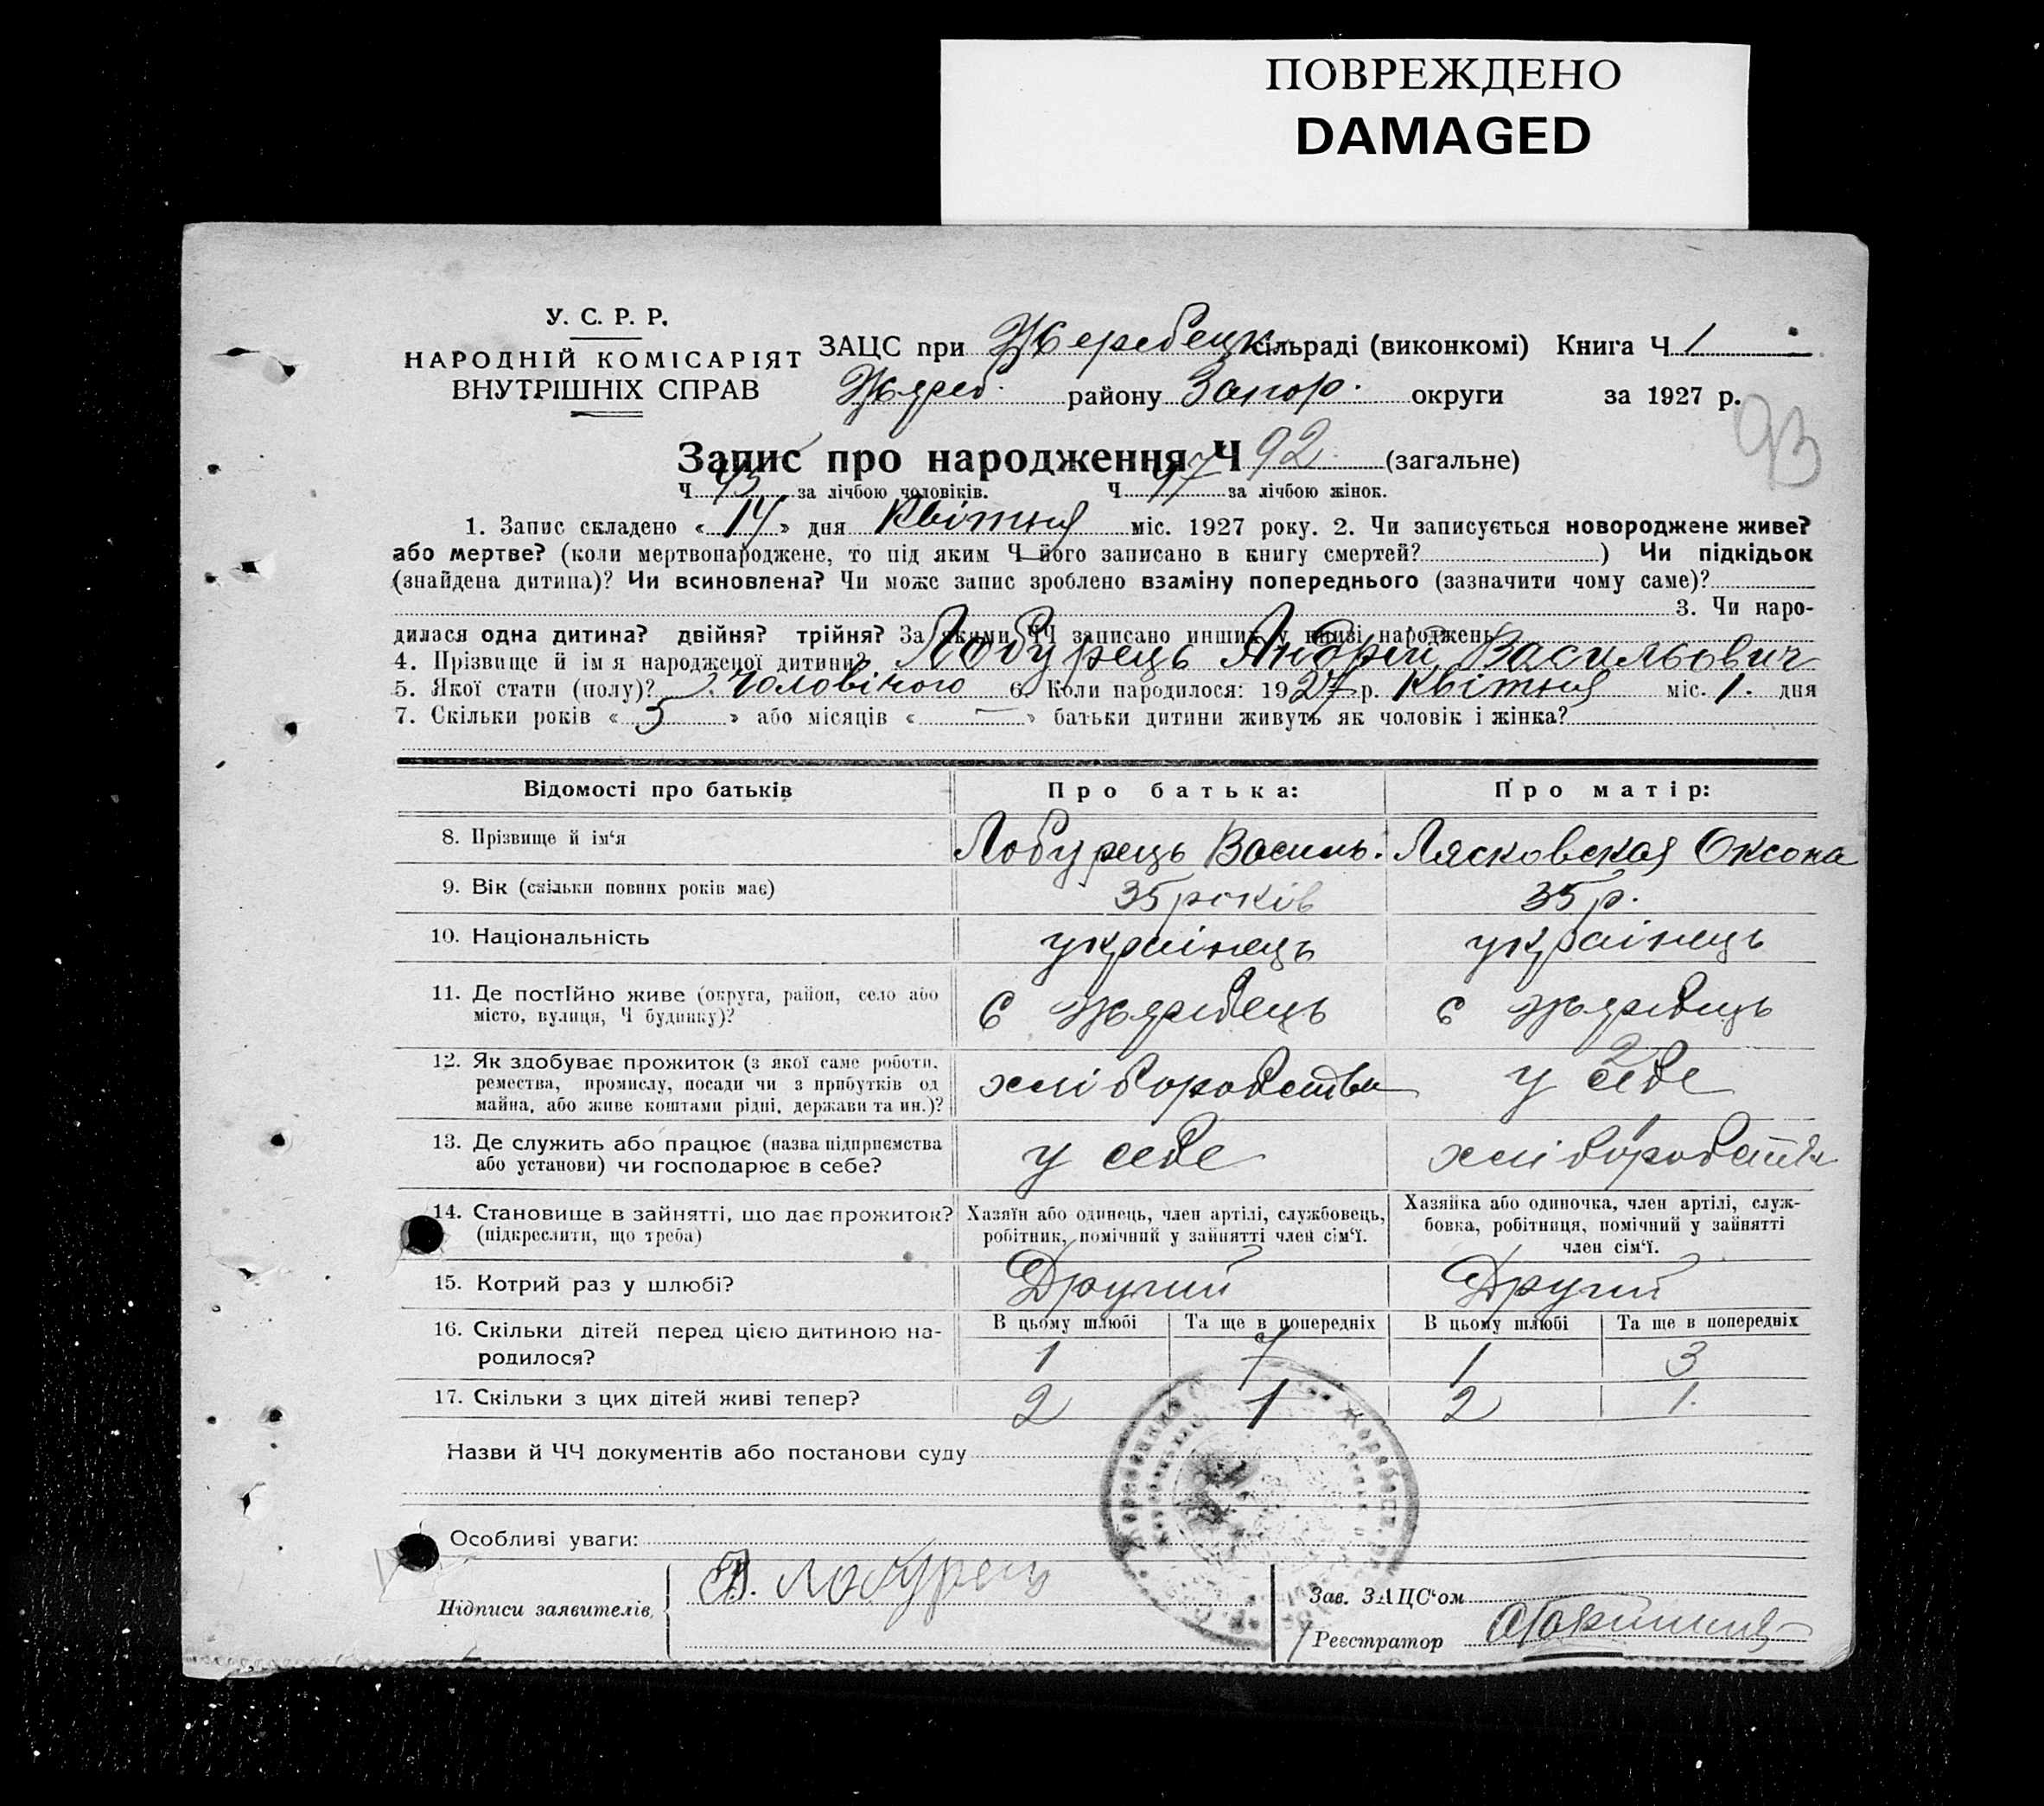 ПОВРЕЖДЕНО
DAMAGED
У. С. Р. Р.
НАРОДНІЙ КОМІСАРІЯТ
ВНУТРІШНІХ СПРАВ
ЗАЦС при Жеребецк. сільраді (виконкомі) Книга Ч 1
Жереб. району Запор. округи за 1927 р.
93
Запис про народження Ч 92 (загальне)
Ч 45 за лічбою чоловіків. Ч 47 за лічбою жінок.
1. Запис складено «14» дня Квітня міс. 1927 року. 2. Чи записується новороджене живе?
або мертве? (коли мертвонароджене, то під яким Ч його записано в книгу смертей?) Чи підкідьок
(знайдена дитина)? Чи всиновлена? Чи може запис зроблено взаміну попереднього (зазначити чому саме)?
3. Чи наро-
дилася одна дитина? двійня? трійня? За якими ЧЧ записано инших у книзі народжень
4. Прізвище й імя народженої дитини? Лобурець Андрій Васильович
5. Якої стати (полу)? чоловічого 6. Коли народилося: 1927 р. Квітня міс. 1. дня
7. Скільки років «5» або місяців «—» батьки дитини живуть як чоловік і жінка?
Відомості про батьків Про батька: Про матір:
8. Прізвище й ім'я Лобурець Василь. Лясковская Оксона
9. Вік (скільки повних років має) 35 років 35 р.
10. Національність українець українець
11. Де постійно живе (округа, район, село або
місто, вулиця, Ч будинку)? с Жеребець с Жеребець
12. Як здобуває прожиток (з якої саме роботи,
ремества, промислу, посади чи з прибутків од
майна, або живе коштами рідні, держави та ин.)? хліборобства у себе
13. Де служить або працює (назва підприємства
або установи) чи господарює в себе? у себе хліборобств
14. Становище в зайнятті, що дає прожиток?
(підкреслити, що треба)
Хазяїн або одинець, член артілі, службовець,
робітник, помічний у зайнятті член сім'ї.
Хазяйка або одиночка, член артілі, служ-
бовка, робітниця, помічний у зайнятті
член сім'ї.
15. Котрий раз у шлюбі? Другий Другий
16. Скільки дітей перед цією дитиною на-
родилося?
В цьому шлюбі Та ще в попередніх В цьому шлюбі Та ще в попередніх
1 7 1 3
17. Скільки з цих дітей живі тепер? 2 1 2 1.
Назви й ЧЧ документів або постанови суду
Особливі уваги:
Підписи заявителів, В. Лобурец
Зав. ЗАЦС'ом
Реєстратор